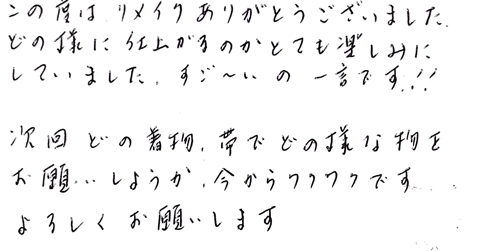 この度は リメイクありがとうございました.
どの様に仕上がるのかとても楽しみに
していました. すご〜いの一言です!!
次回 どの着物, 帯で どの様な物を
お願いしようか, 今からワクワクです
よろしくお願いします